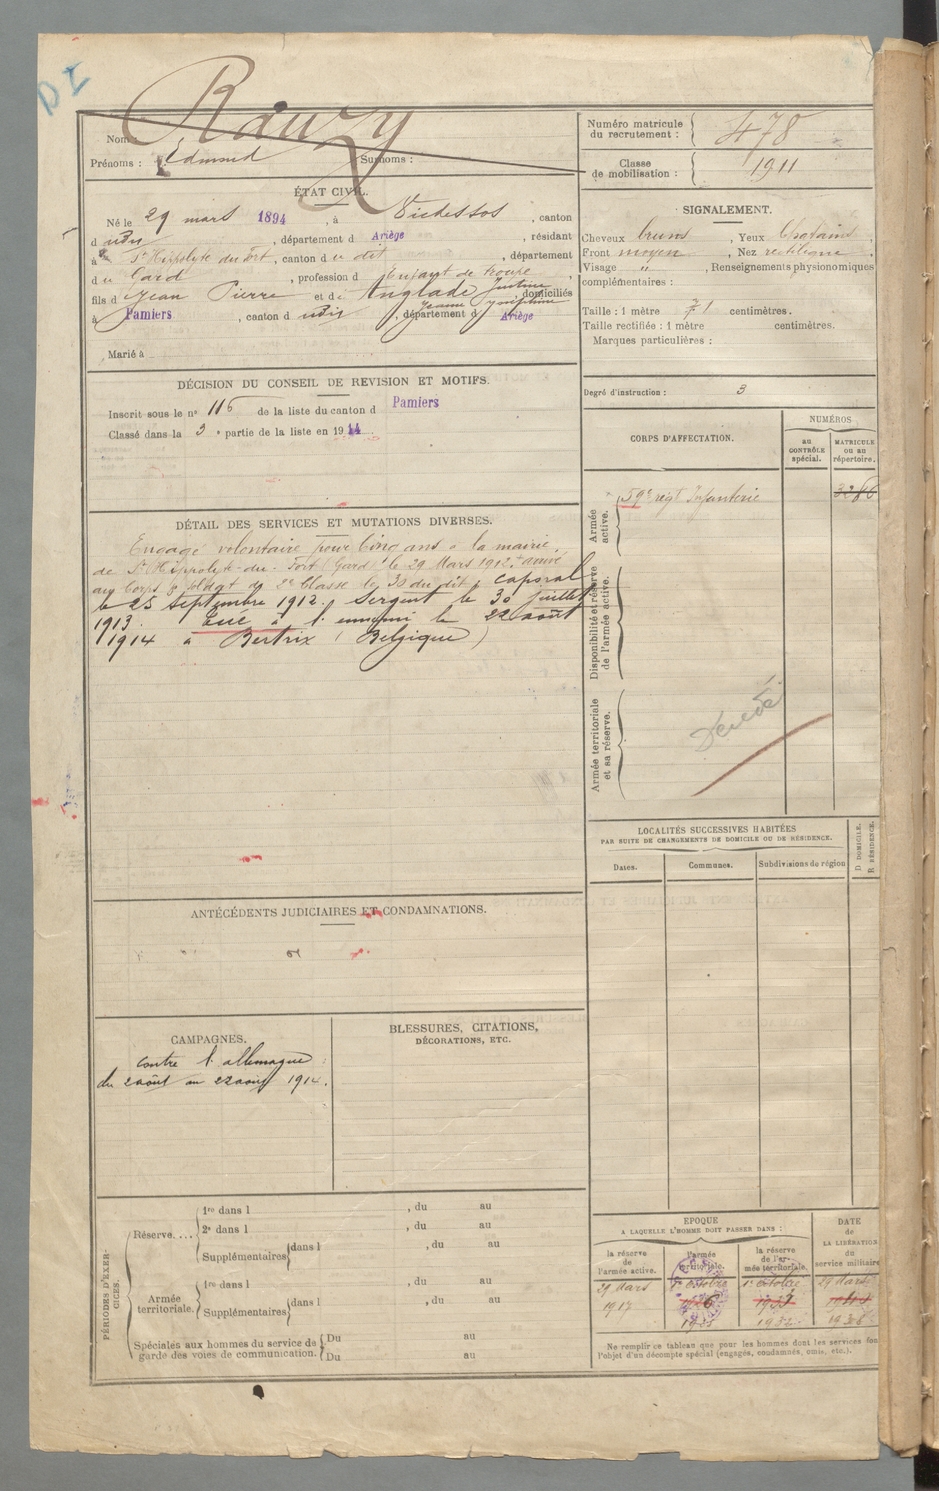 DI
Rauzy
Nom :
Prénoms : Edmond Surnoms :
ÉTAT CIVIL.
Né le 29 mars 1894, à Vicdessos, canton
d udis, département d Ariège, résidant
à St Hippolyte du Fort, canton d u dit, département
d u Gard, profession d Enfant de troupe,
fils d Jean Pierre et de Anglade Justine Jeanne Joséphine, domiciliés
à Pamiers, canton d udis, département d Ariège
Marié à
DÉCISION DU CONSEIL DE REVISION ET MOTIFS.
Inscrit sous le n° 116 de la liste du canton d Pamiers
Classé dans la 3e partie de la liste en 1914.
DÉTAIL DES SERVICES ET MUTATIONS DIVERSES.
Engagé volontaire pour Cinq ans à la mairie
de St Hippolyte-du-Fort (Gard) le 29 Mars 1912. arrivé
au Corps & soldat de 2e Classe le 30 du dit, caporal
le 25 Septembre 1912. Sergent le 30 juillet
1913. Tué à l'ennemi le 22 août
1914 à Bertrix (Belgique)
ANTÉCÉDENTS JUDICIAIRES ET CONDAMNATIONS.
CAMPAGNES.
contre l'allemagne :
du 2 août au 22 août 1914.
BLESSURES, CITATIONS,
DÉCORATIONS, ETC.
PÉRIODES D'EXERCICES.
Réserve....
1re dans l , du au
2e dans l , du au
Supplémentaires dans l , du au
Armée territoriale.
1re dans l , du au
Supplémentaires dans l , du au
Spéciales aux hommes du service de Du au
garde des voies de communication. Du au
Numéro matricule du recrutement : 478
Classe de mobilisation : 1911
SIGNALEMENT.
Cheveux bruns, Yeux Chatains,
Front moyen, Nez rectiligne,
Visage ", Renseignements physionomiques
complémentaires :
Taille : 1 mètre 71 centimètres.
Taille rectifiée : 1 mètre centimètres.
Marques particulières :
Degré d'instruction : 3
CORPS D'AFFECTATION.
NUMÉROS
au CONTRÔLE spécial.
MATRICULE ou au répertoire.
Armée active.
59e régt Infanterie 3286
Disponibilité et réserve de l'armée active.
Armée territoriale et sa réserve.
Décédé
LOCALITÉS SUCCESSIVES HABITÉES
PAR SUITE DE CHANGEMENTS DE DOMICILE OU DE RÉSIDENCE.
Dates. Communes. Subdivisions de région
D DOMICILE.
R RÉSIDENCE.
EPOQUE
A LAQUELLE L'HOMME DOIT PASSER DANS :
la réserve de l'armée active.
l'armée territoriale.
la réserve de l'armée territoriale.
DATE de LA LIBÉRATION du service militaire
29 Mars 1er octobre 1er octobre 29 Mars
1917 1926 1933
1925 1932 1938
Ne remplir ce tableau que pour les hommes dont les services font
l'objet d'un décompte spécial (engagés, condamnés, omis, etc.).